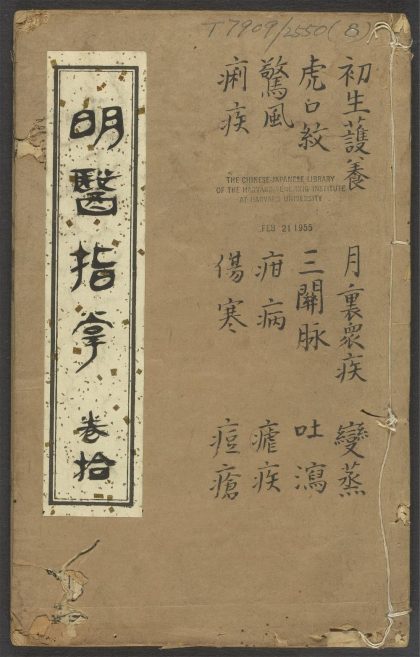 T7909/2550(8)
初生護養 月裏眾疾 變蒸
虎口紋 三關脉 吐瀉
驚風 疳病 瘧疾
痢疾 傷寒 痘瘡
THE CHINESE-JAPANESE LIBRARY
OF THE HARVARD-YENCHING INSTITUTE
AT HARVARD UNIVERSITY
FEB 21 1955
明醫指掌 卷拾